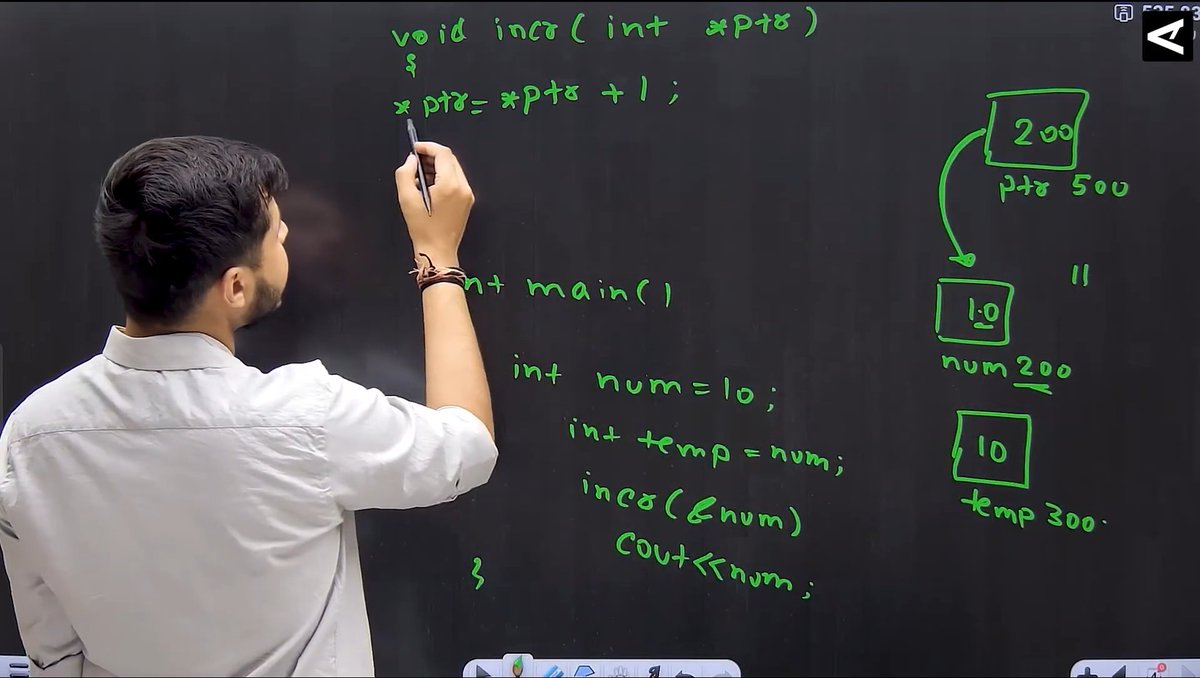 void incr( int *ptr)
{
*ptr= *ptr +1 ;
nt main()
int num=10;
int temp=num;
incr(&num)
cout<<num;
}
200
ptr 500
11
10
num 200
10
temp 300.